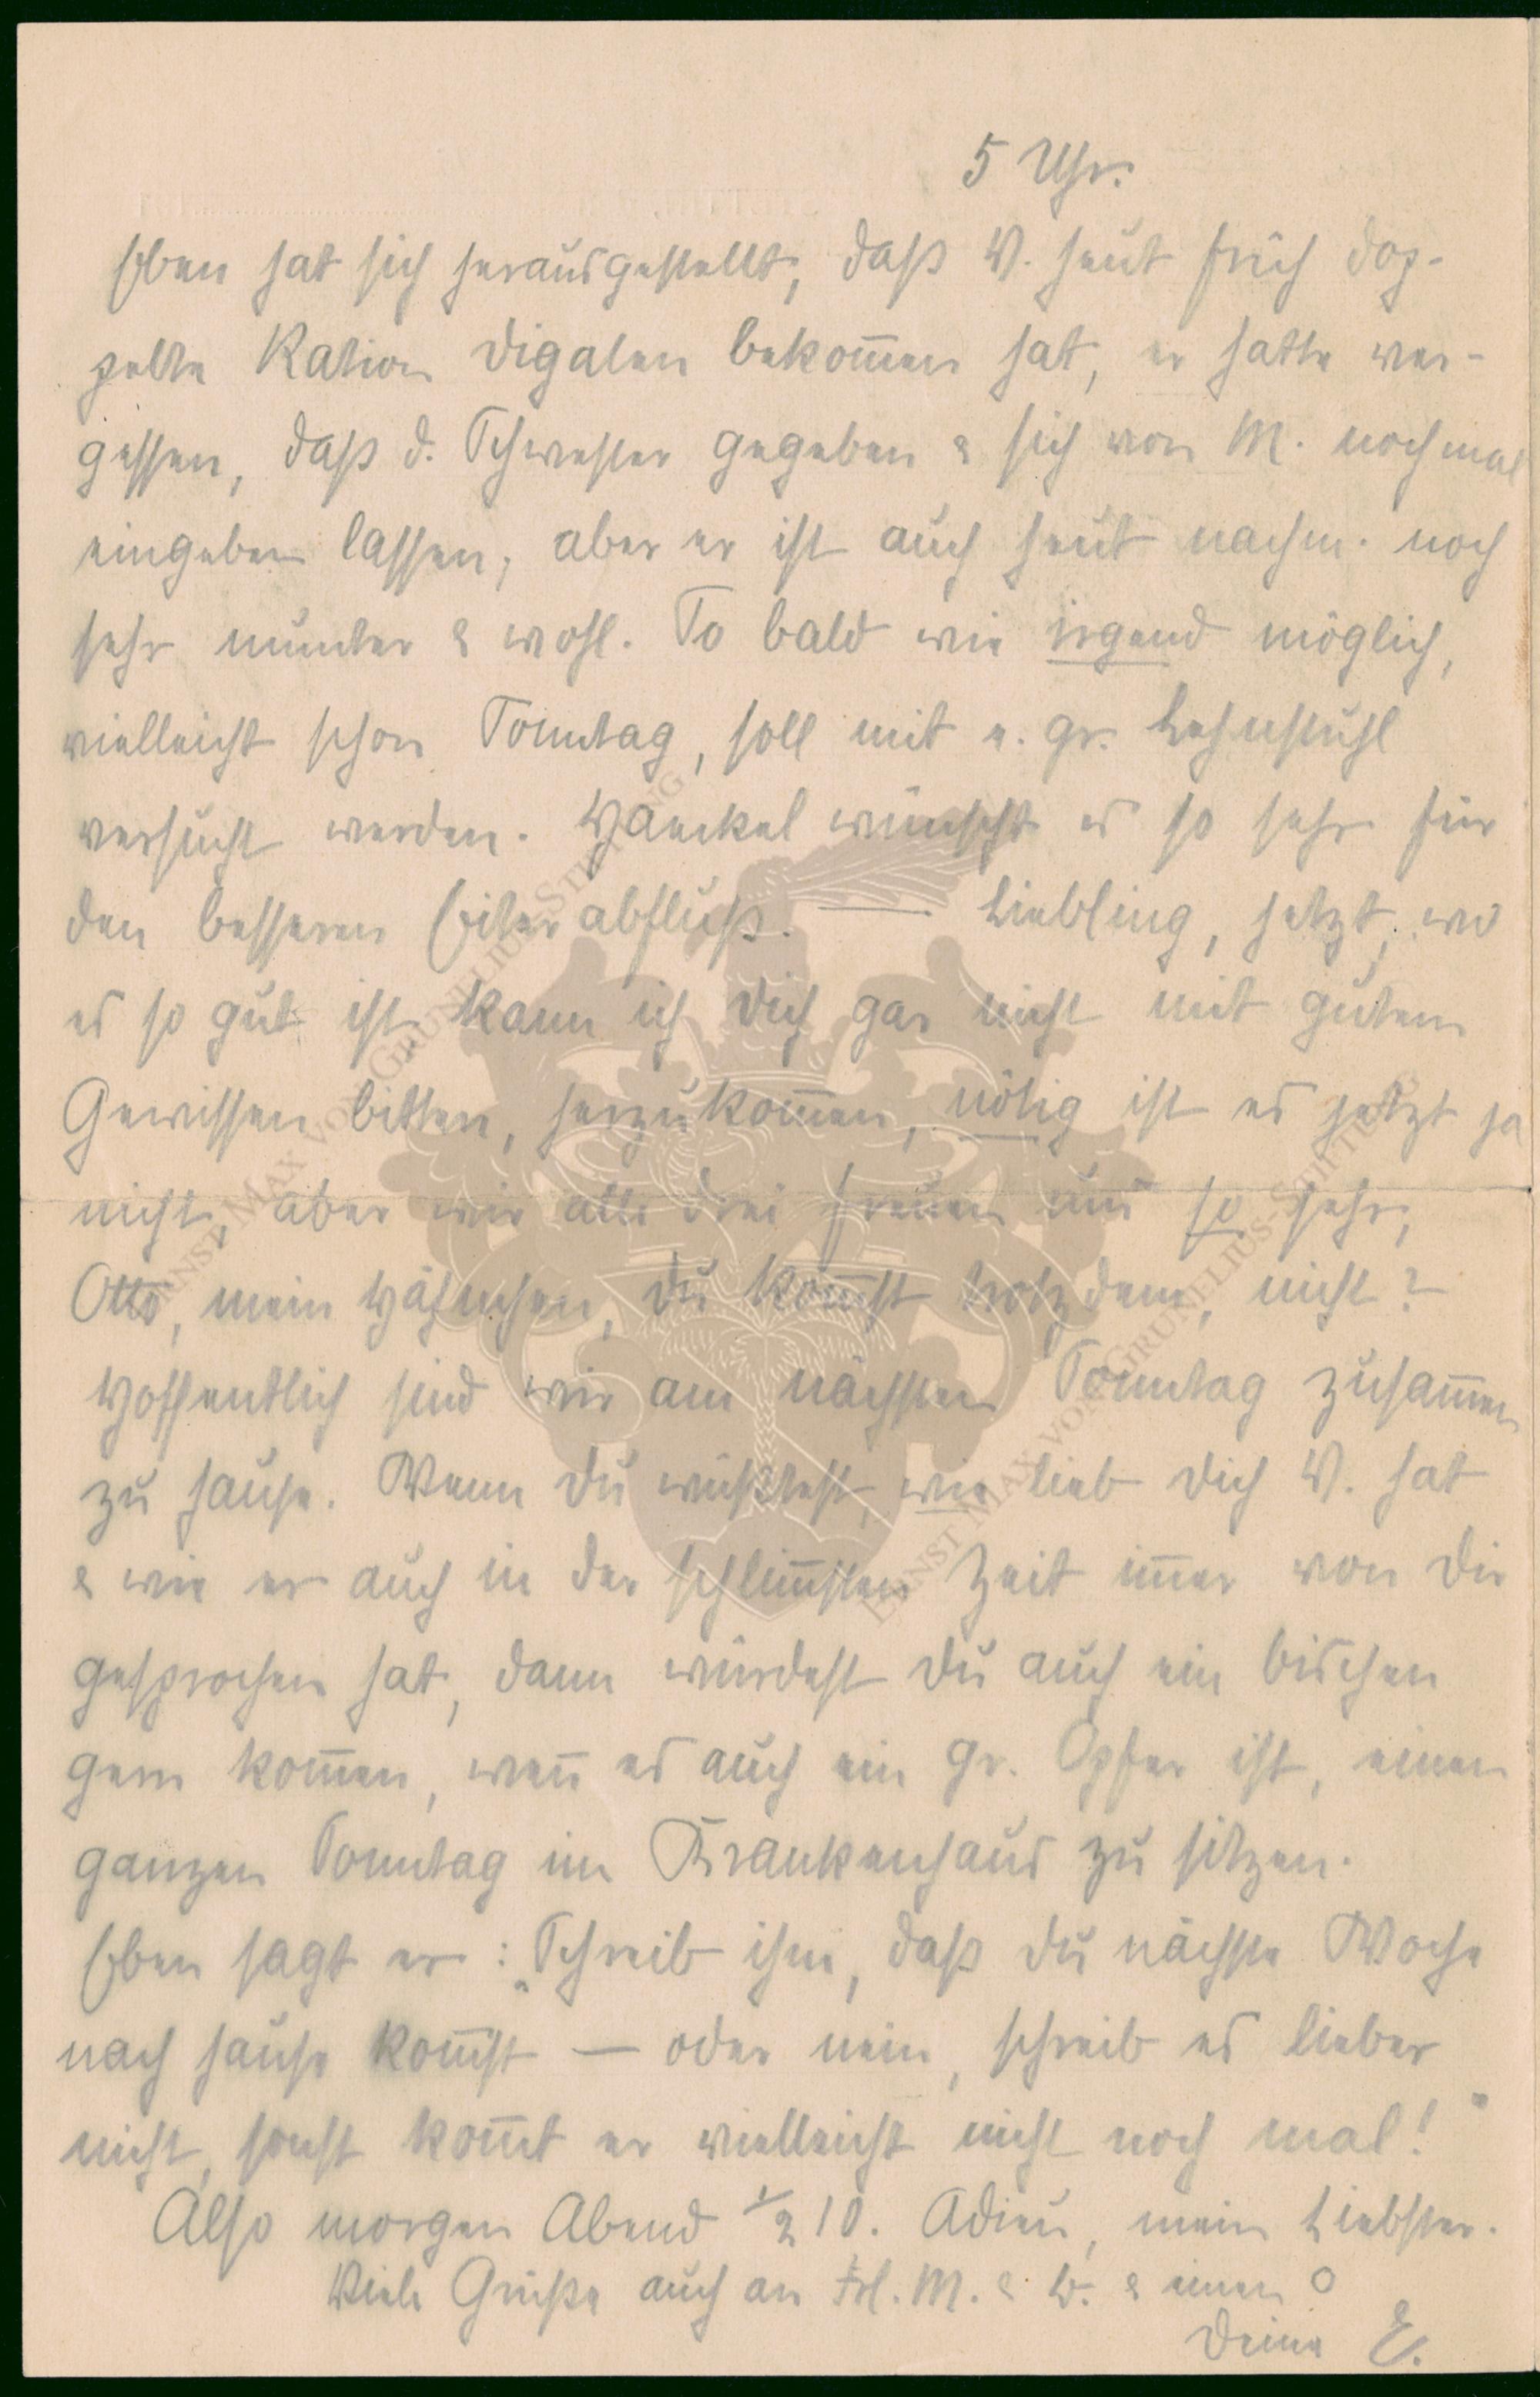 5 Uhr.
Eben hat sich herausgestellt, daß V. heut früh dop-
pelte Ration Digalen bekom̄en hat, er hatte ver-
gessen, daß d. Schwester gegeben & sich von M. nochmal
eingeben lassen; aber er ist auch heut nachm. noch
sehr munter & wohl. So bald wie irgend möglich,
vielleicht schon Sonntag, soll mit e. gr. Lehnstuhl
versucht werden. Haeckel wünscht es so sehr für
den besseren Eiterabfluß. — Liebling, jetzt, wo
es so gut ist kann ich Dich gar nicht mit gutem
Gewissen bitten, herzukom̄en, nötig ist es jetzt ja
nicht, aber wir alle drei freuen uns so sehr,
Otto, mein Hähnchen, Du kom̄st trotzdem, nicht?
Hoffentlich sind wir am nächsten Sonntag zusam̄en
zu hause. Wenn Du wüßtest, wie lieb Dich V. hat
& wie er auch in der schlim̄sten Zeit im̄er von Dir
gesprochen hat, dann würdest Du auch ein bischen
gern kom̄en, wen̄ es auch ein gr. Opfer ist, einen
ganzen Sonntag im Krankenhaus zu sitzen.
Eben sagt er: „Schreib ihm, daß Du nächste Woche
nach hause kom̄st — oder nein, schreib es lieber
nicht, sonst kom̄t er vielleicht nicht noch mal!"
Also morgen Abend ½ 10. Adieu, mein Liebster.
Viele Grüße auch an Frl. M. & W. & einen o
Deine E.
ERNST MAX VON GRUNELIUS-STIFTUNG
ERNST MAX VON GRUNELIUS-STIFTUNG